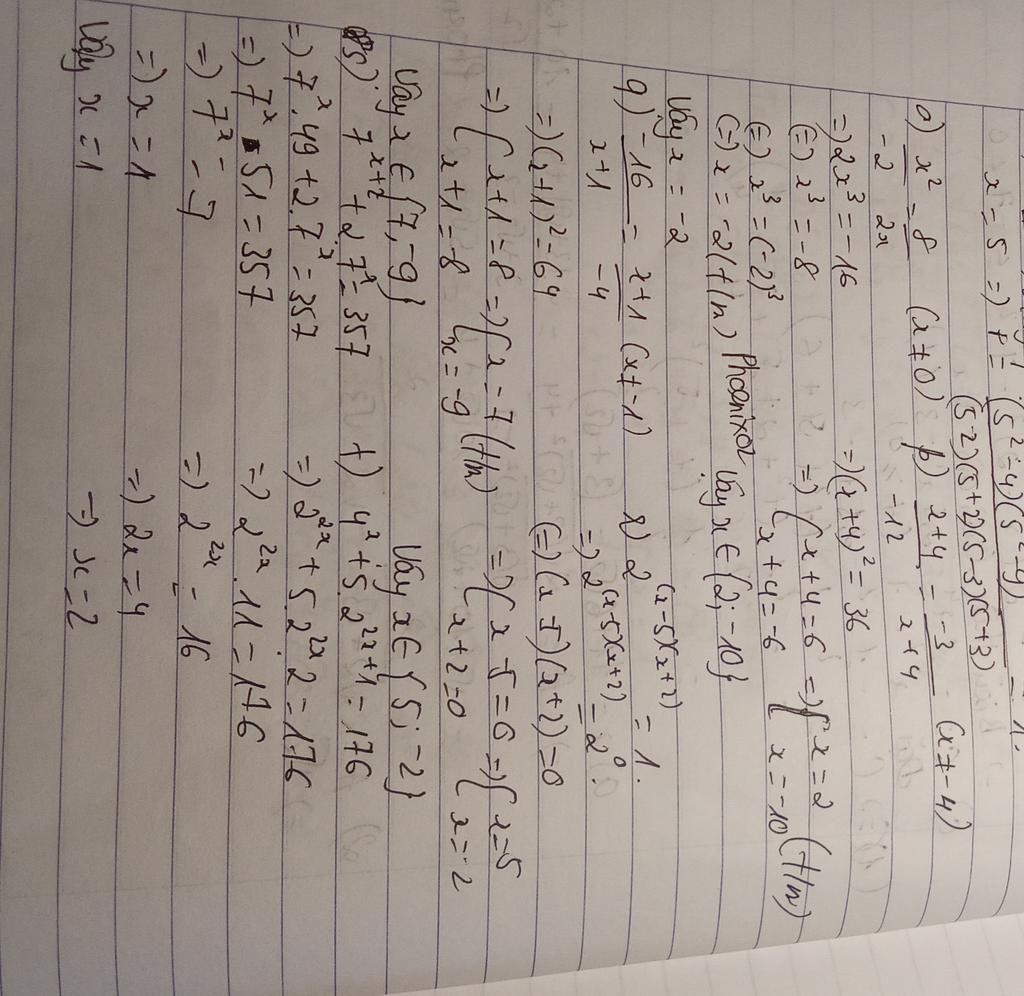 x = 5 =)
(5² - 4)(5² - 9)
(5-2)(5+2)(5-3)(5+3)
o) x²/-2 = 8/2x (x ≠ 0)
p) x+4/-12 = -3/x+4 (x ≠ -4)
=) 2x³ = -16
=) (x+4)² = 36
(=) x³ = -8
=) { x+4 = 6 =) { x = 2 (t/m)
(=) x³ = (-2)³
{ x+4 = -6 { x = -10
(=) x = -2 (t/m)
Phoenixar
Vậy x ∈ {2; -10}
Vậy x = -2
q) -16/x+1 = x+1/-4 (x ≠ -1)
r) 2^(x-5)(x+2) = 1.
=) (x+1)² = 64
=) 2^(x-5)(x+2) = 2⁰.
(=) (x-5)(x+2) = 0
=) { x+1 = 8 =) { x = 7 (t/m)
=) { x-5 = 0 =) { x = 5
{ x+1 = -8 { x = -9
{ x+2 = 0 { x = -2
Vậy x ∈ {7, -9}
Vậy x ∈ {5; -2}
s) 7^x+2 + 2.7^x = 357
t) 4^x + 5.2^2x+1 = 176
=) 7^x.49 + 2.7^x = 357
=) 2^2x + 5.2^2x.2 = 176
=) 7^x.51 = 357
=) 2^2x.11 = 176
=) 7^x = 7
=) 2^2x = 16
=) x = 1
=) 2x = 4
Vậy x = 1
=) x = 2